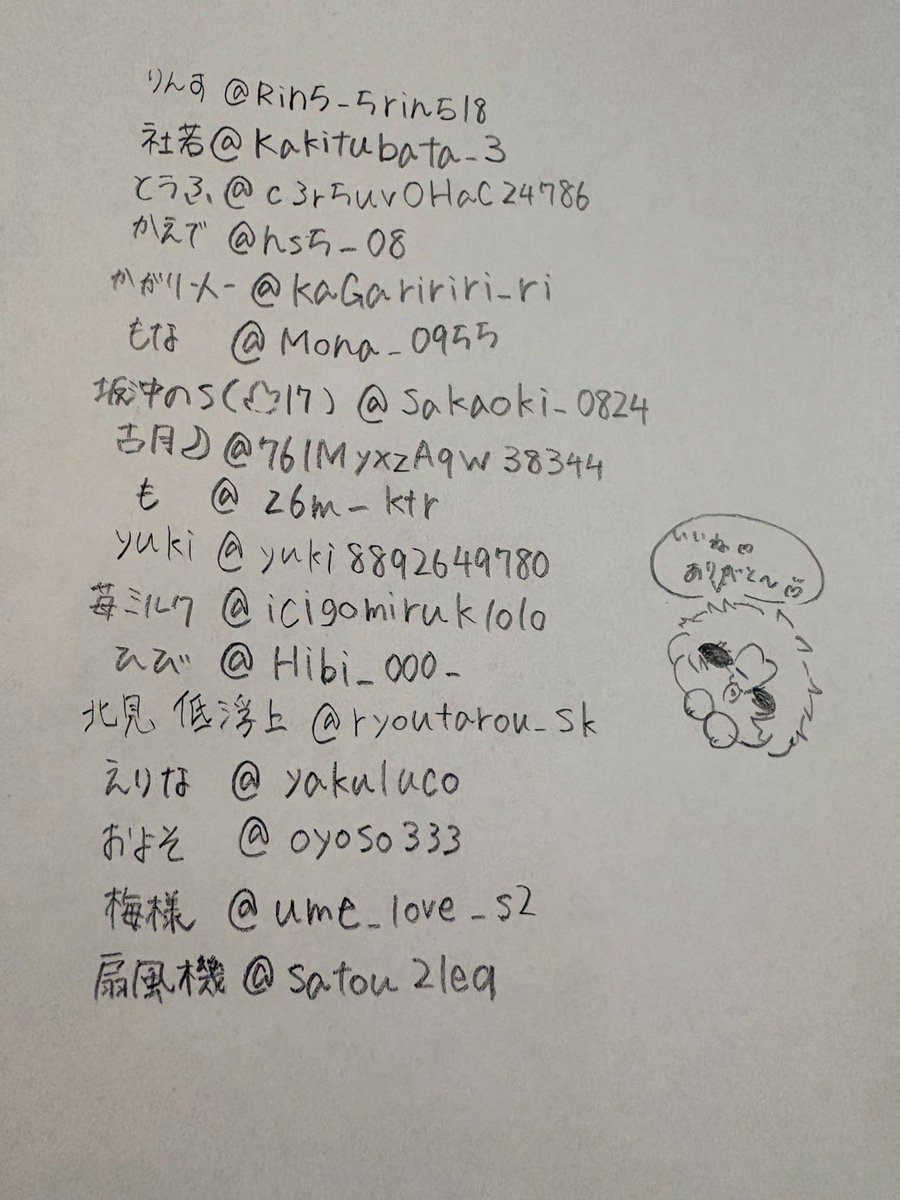 りんす @Rin5_5rin518
社若 @kakitubata_3
とうふ @c3r5uvOHaC24786
かえで @hs5_08
かがりー人ー @kaGaririri_ri
もな @Mona_0955
坂沖のS(17) @Sakaoki_0824
古月 @761MyxzAqw38344
も @26m_ktr
yuki @yuki8892649780
苺ミルク @icigomiruk1010
ひび @Hibi_000_
北見 低浮上 @ryoutarou_sk
えりな @yakuluco
およそ @oyoso333
梅様 @ume_love_s2
扇風機 @satou2leq
いいね♡
ありがと〜♡